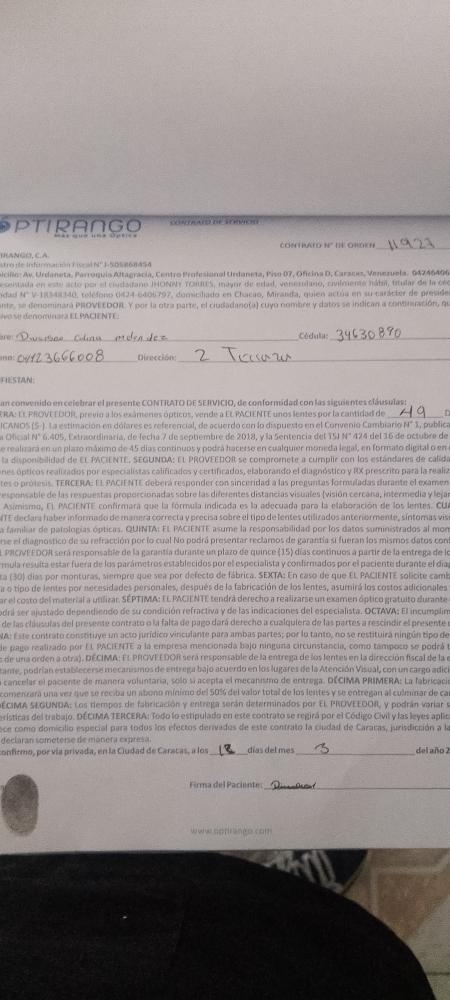 OPTIRANGO
Más que una Óptica
CONTRATO DE SERVICIO
CONTRATO N° DE ORDEN 11923
IRANGO, C.A.
stro de Información Fiscal N° J-505868454
icilio: Av. Urdaneta, Parroquia Altagracia, Centro Profesional Urdaneta, Piso 07, Oficina D, Caracas, Venezuela. 04246406
esentada en este acto por el ciudadano JHONNY TORRES, mayor de edad, venezolano, civilmente hábil, titular de la céd
idad N° V-18348340, teléfono 0424-6406797, domiciliado en Chacao, Miranda, quien actúa en su carácter de preside
nte, se denominará PROVEEDOR. Y por la otra parte, el ciudadano(a) cuyo nombre y datos se indican a continuación, qu
ivo se denominará EL PACIENTE:
bre: Colina Cédula: 34630890
ono: 04123666008 Dirección: 2
FIESTAN:
an convenido en celebrar el presente CONTRATO DE SERVICIO, de conformidad con las siguientes cláusulas:
ERA: EL PROVEEDOR, previo a los exámenes ópticos, vende a EL PACIENTE unos lentes por la cantidad de 49 D
ICANOS ($-). La estimación en dólares es referencial, de acuerdo con lo dispuesto en el Convenio Cambiario N° 1, publica
a Oficial N° 6.405, Extraordinaria, de fecha 7 de septiembre de 2018, y la Sentencia del TSJ N° 424 del 16 de octubre de
e realizará en un plazo máximo de 45 días continuos y podrá hacerse en cualquier moneda legal, en formato digital o en e
la disponibilidad de EL PACIENTE. SEGUNDA: EL PROVEEDOR se compromete a cumplir con los estándares de calida
nes ópticos realizados por especialistas calificados y certificados, elaborando el diagnóstico y RX prescrito para la realiz
tes o prótesis. TERCERA: EL PACIENTE deberá responder con sinceridad a las preguntas formuladas durante el examen
responsable de las respuestas proporcionadas sobre las diferentes distancias visuales (visión cercana, intermedia y lejan
Asimismo, EL PACIENTE confirmará que la fórmula indicada es la adecuada para la elaboración de los lentes. CUA
NTE declara haber informado de manera correcta y precisa sobre el tipo de lentes utilizados anteriormente, síntomas visu
a familiar de patologías ópticas. QUINTA: EL PACIENTE asume la responsabilidad por los datos suministrados al mom
rse el diagnostico de su refracción por lo cual No podrá presentar reclamos de garantía si fueran los mismos datos cont
L PROVEEDOR será responsable de la garantía durante un plazo de quince (15) días continuos a partir de la entrega de lo
rmula resulta estar fuera de los parámetros establecidos por el especialista y confirmados por el paciente durante el diag
ta (30) días por monturas, siempre que sea por defecto de fábrica. SEXTA: En caso de que EL PACIENTE solicite camb
a o tipo de lentes por necesidades personales, después de la fabricación de los lentes, asumirá los costos adicionales
ar el costo del material a utilizar. SÉPTIMA: EL PACIENTE tendrá derecho a realizarse un examen óptico gratuito durante
odrá ser ajustado dependiendo de su condición refractiva y de las indicaciones del especialista. OCTAVA: El incumplim
de las cláusulas del presente contrato o la falta de pago dará derecho a cualquiera de las partes a rescindir el presente
NA: Este contrato constituye un acto jurídico vinculante para ambas partes; por lo tanto, no se restituirá ningún tipo de
de pago realizado por EL PACIENTE a la empresa mencionada bajo ninguna circunstancia, como tampoco se podrá t
de una orden a otra). DÉCIMA: EL PROVEEDOR será responsable de la entrega de los lentes en la dirección fiscal de la e
tante, podrían establecerse mecanismos de entrega bajo acuerdo en los lugares de la Atención Visual, con un cargo adici
cancelar el paciente de manera voluntaria, solo si acepta el mecanismo de entrega. DÉCIMA PRIMERA: La fabricació
comenzará una vez que se reciba un abono mínimo del 50% del valor total de los lentes y se entregan al culminar de can
ÉCIMA SEGUNDA: Los tiempos de fabricación y entrega serán determinados por EL PROVEEDOR, y podrán variar s
erísticas del trabajo. DÉCIMA TERCERA: Todo lo estipulado en este contrato se regirá por el Código Civil y las leyes aplic
ece como domicilio especial para todos los efectos derivados de este contrato la ciudad de Caracas, jurisdicción a la
declaran someterse de manera expresa.
onfirmo, por vía privada, en la Ciudad de Caracas, a los 18 días del mes 3 del año 2
Firma del Paciente:
www.optirango.com